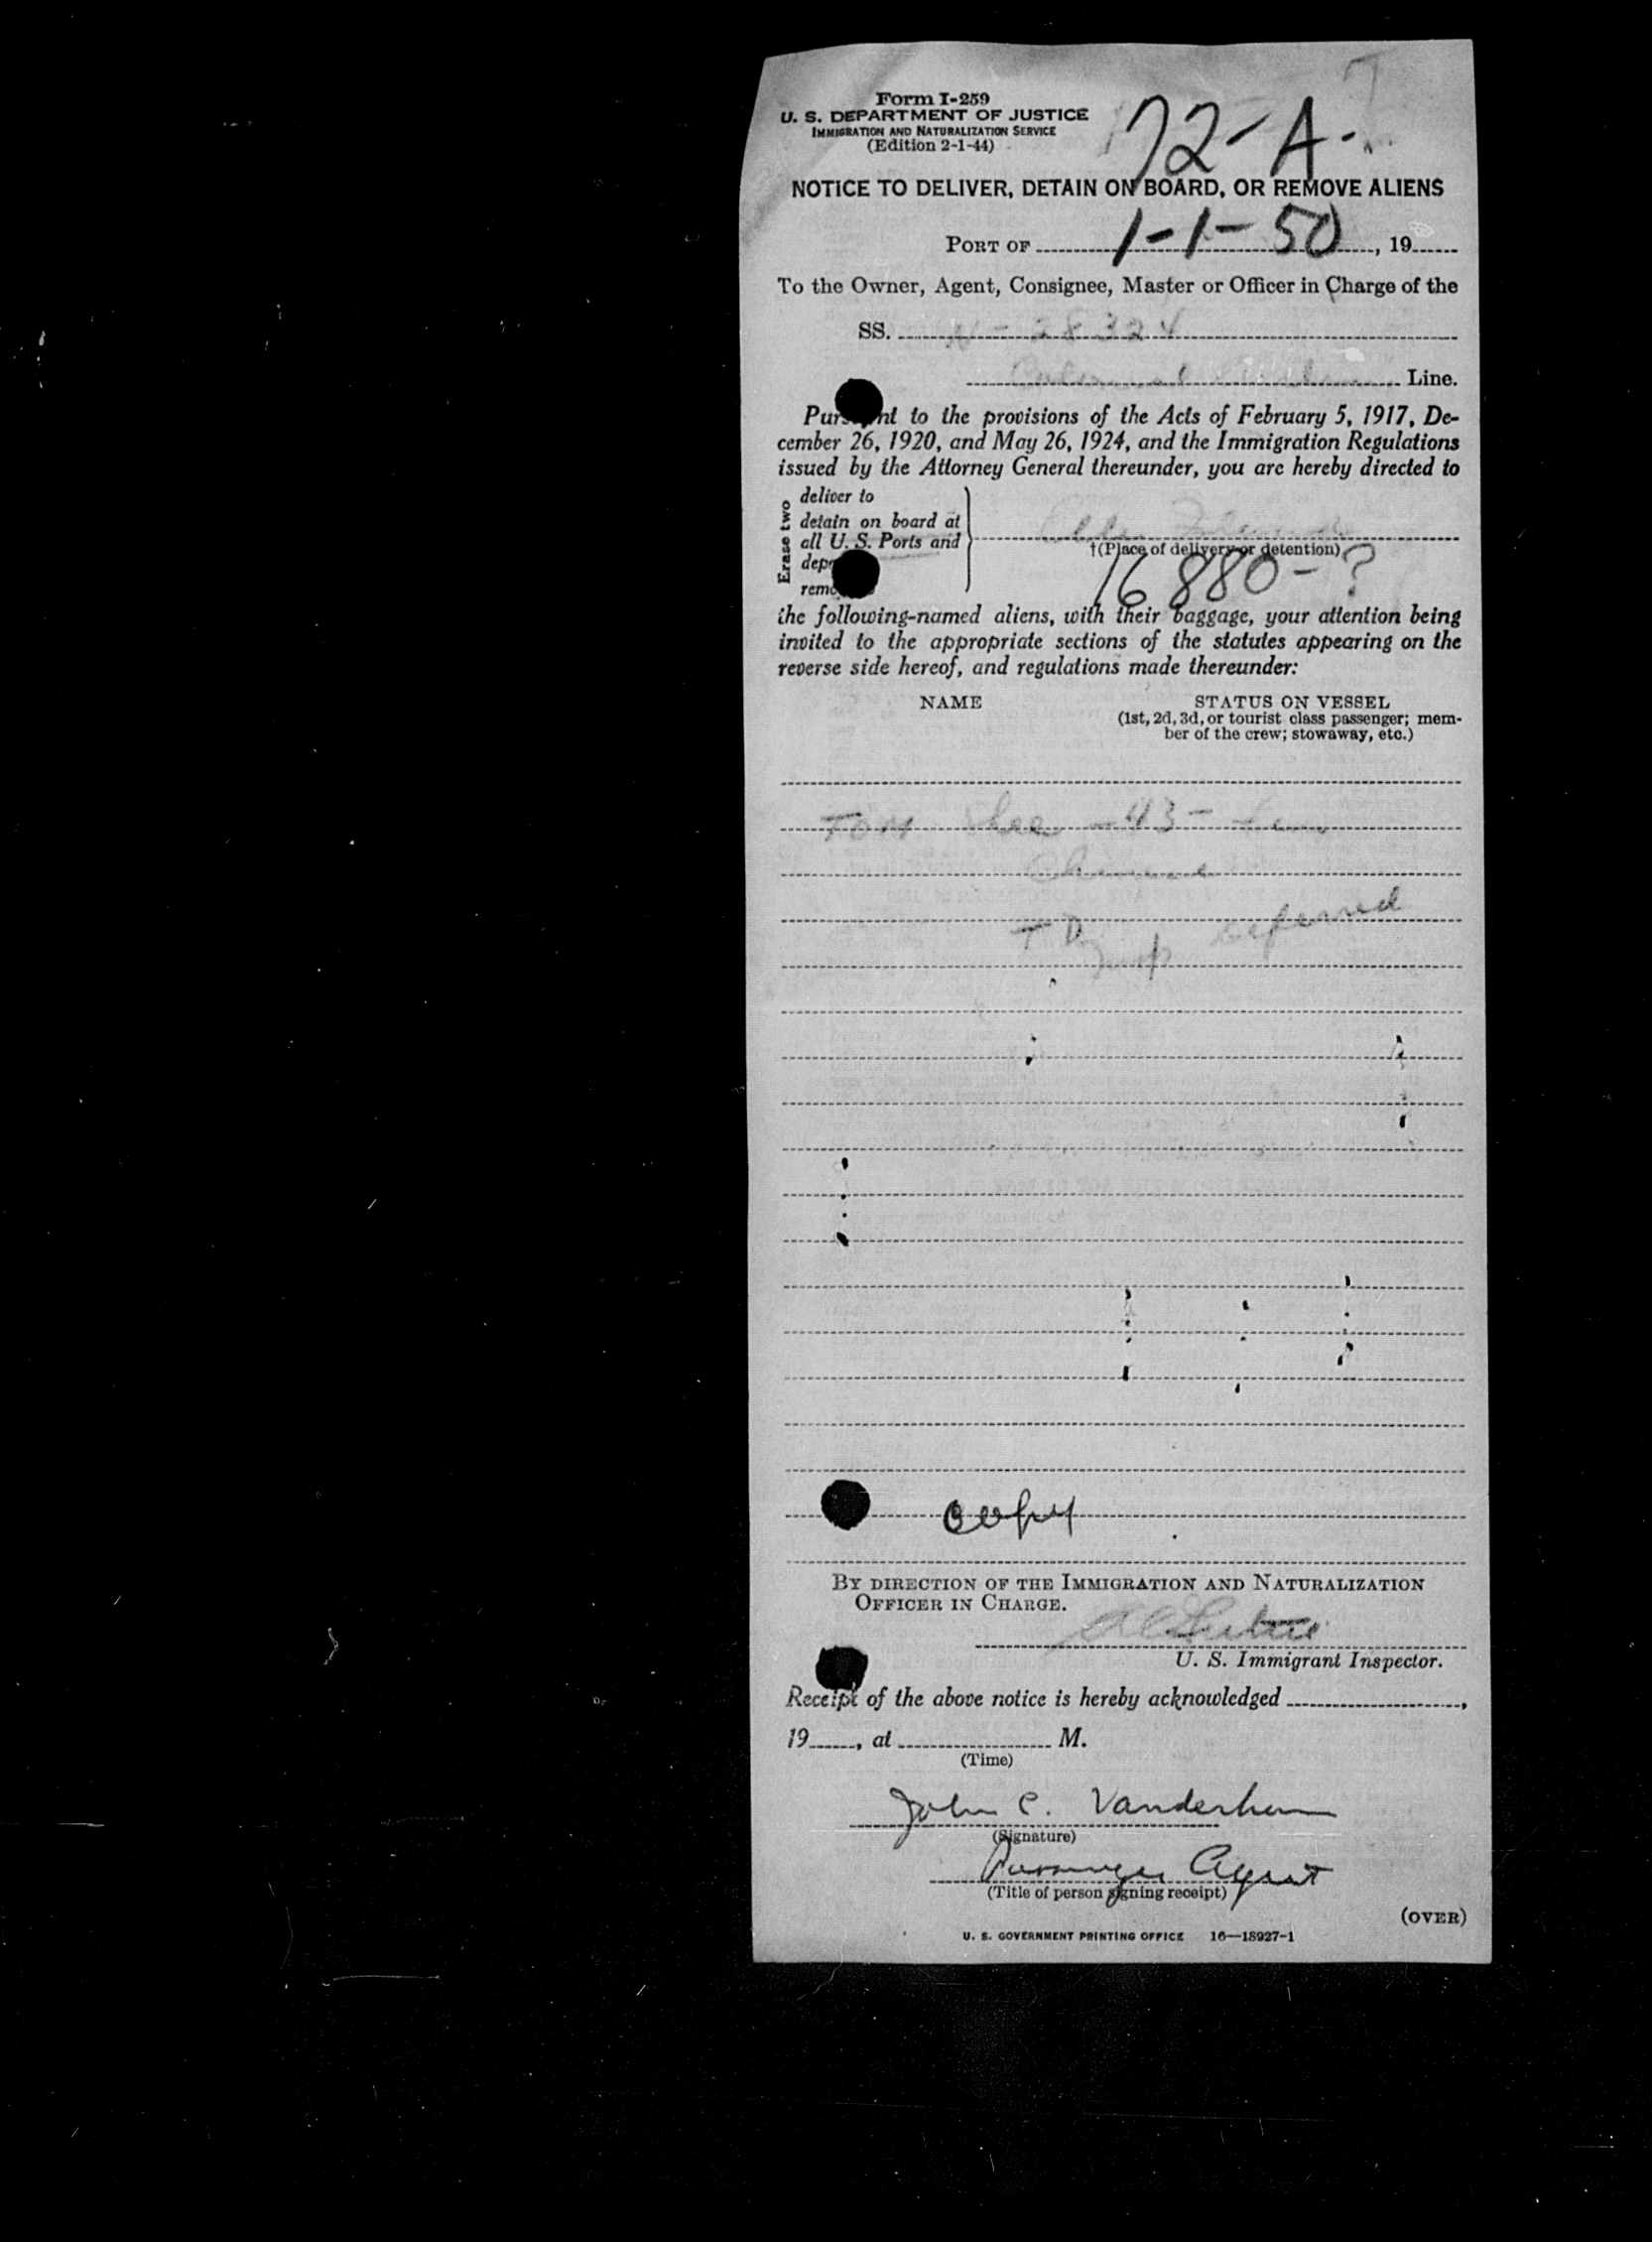 Form I-259
U. S. DEPARTMENT OF JUSTICE
IMMIGRATION AND NATURALIZATION SERVICE
(Edition 2-1-44)
72-A-
NOTICE TO DELIVER, DETAIN ON BOARD, OR REMOVE ALIENS
PORT OF 1-1-50, 19
To the Owner, Agent, Consignee, Master or Officer in Charge of the
SS. N-28324
Line.
to the provisions of the Acts of February 5, 1917, De-
cember 26, 1920, and May 26, 1924, and the Immigration Regulations
issued by the Attorney General thereunder, you are hereby directed to
Erase two
deliver to
detain on board at
all U. S. Ports and
†(Place of delivery or detention)
16880-?
the following-named aliens, with their baggage, your attention being
invited to the appropriate sections of the statutes appearing on the
reverse side hereof, and regulations made thereunder:
NAME
STATUS ON VESSEL
(1st, 2d, 3d, or tourist class passenger; mem-
ber of the crew; stowaway, etc.)
Tom Shee -43- fem
Chinese
TD Insp deferred
Copy
BY DIRECTION OF THE IMMIGRATION AND NATURALIZATION
OFFICER IN CHARGE.
U. S. Immigrant Inspector.
Receipt of the above notice is hereby acknowledged ,
19 , at M.
(Time)
John C. Vanderhem
(Signature)
Passenger Agent
(Title of person signing receipt)
(OVER)
U. S. GOVERNMENT PRINTING OFFICE 16—18927-1